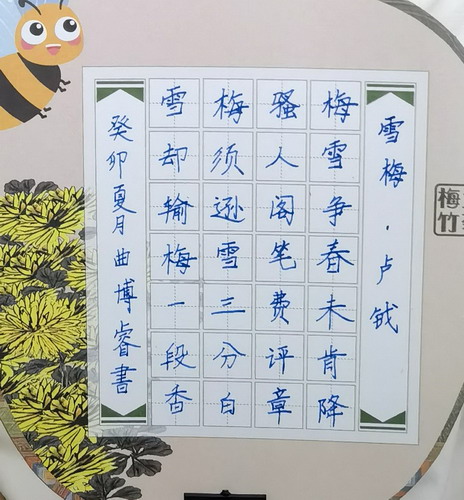 雪梅·卢钺
梅雪争春未肯降
骚人阁笔费评章
梅须逊雪三分白
雪却输梅一段香
癸卯夏月曲博睿書
梅
竹